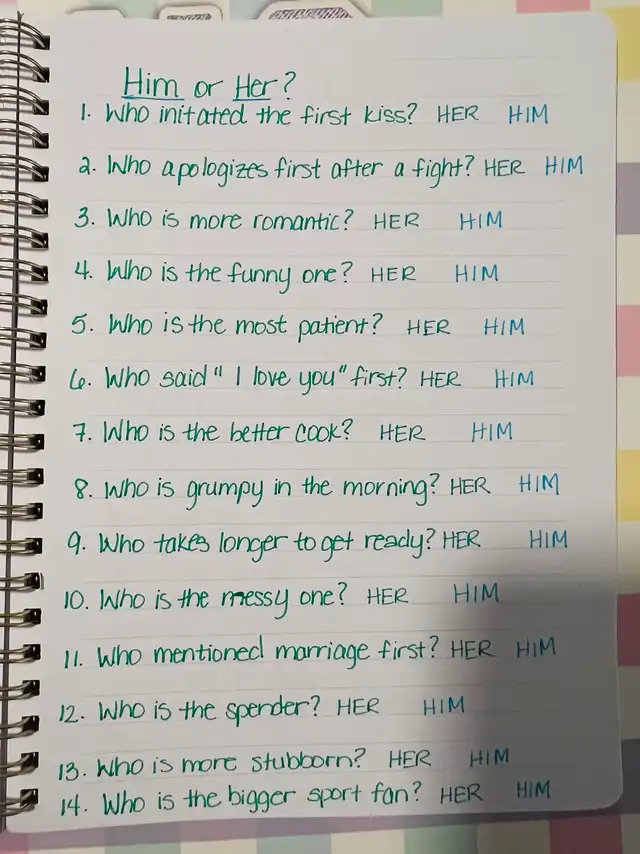 Him or Her?
1. Who initated the first kiss? HER HIM
2. Who apologizes first after a fight? HER HIM
3. Who is more romantic? HER HIM
4. Who is the funny one? HER HIM
5. Who is the most patient? HER HIM
6. Who said " I love you" first? HER HIM
7. Who is the better cook? HER HIM
8. Who is grumpy in the morning? HER HIM
9. Who takes longer to get ready? HER HIM
10. Who is the messy one? HER HIM
11. Who mentioned marriage first? HER HIM
12. Who is the spender? HER HIM
13. Who is more stubborn? HER HIM
14. Who is the bigger sport fan? HER HIM